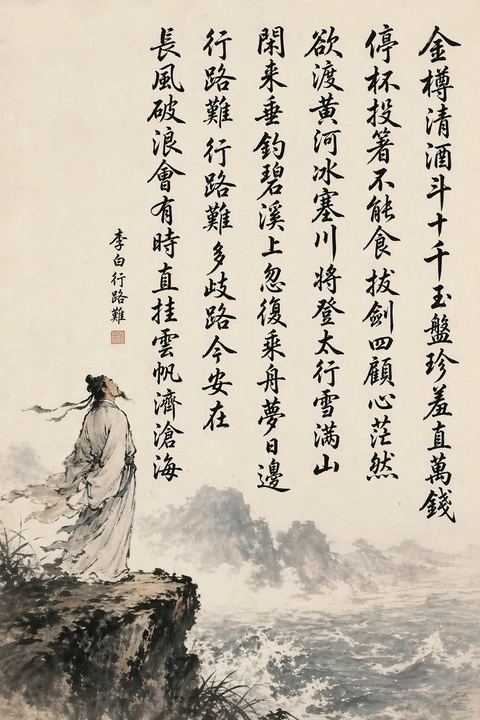 金樽清酒斗十千玉盤珍羞直萬錢
停杯投箸不能食拔劍四顧心茫然
欲渡黃河冰塞川將登太行雪满山
閑来垂釣碧溪上忽復乘舟夢日邊
行路難行路難多歧路今安在
長風破浪會有時直挂雲帆濟滄海
李白行路難